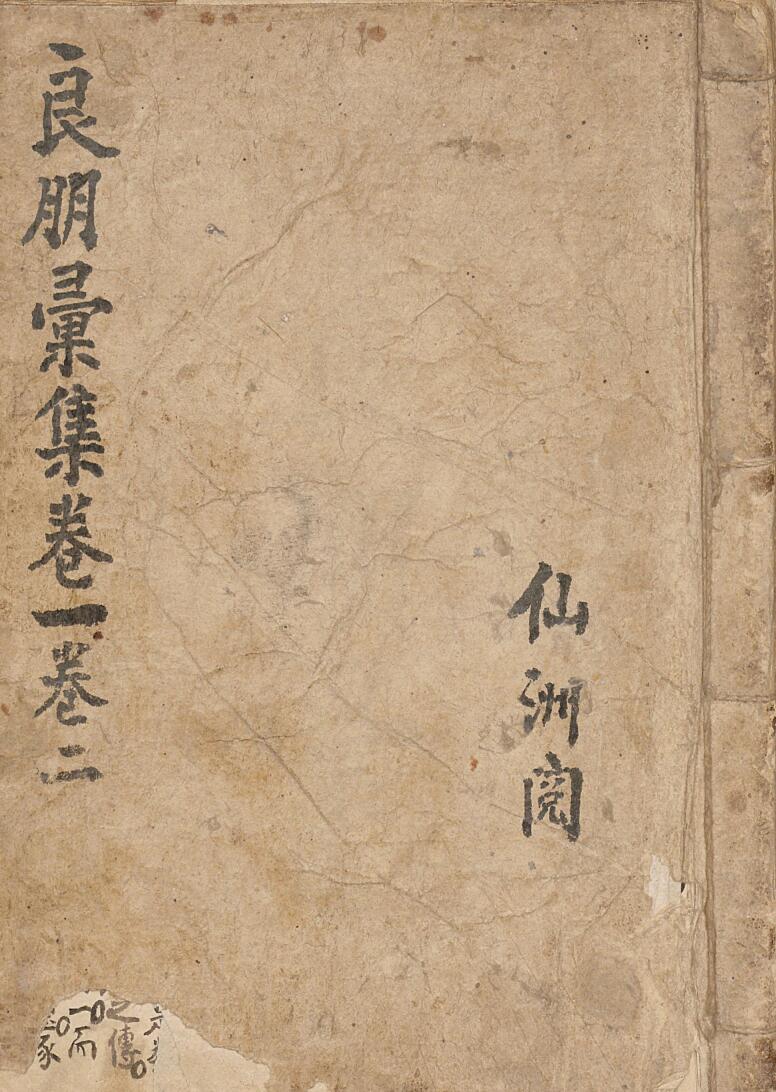 仙洲閱
良朋彙集卷一卷二
之傳
一而
家